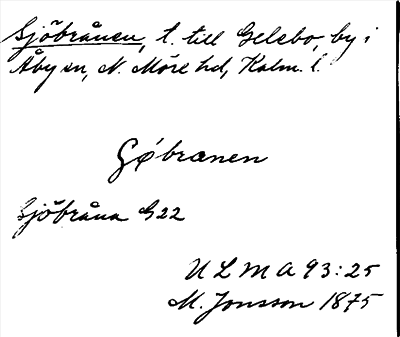 Sjöbrånen, t. till Gelebo, by i
Åby sn, N. Möre hd, Kalm. l.
Gøbranen
Sjöbråna G22
ULMA 93:25
M. Jonsson 1875